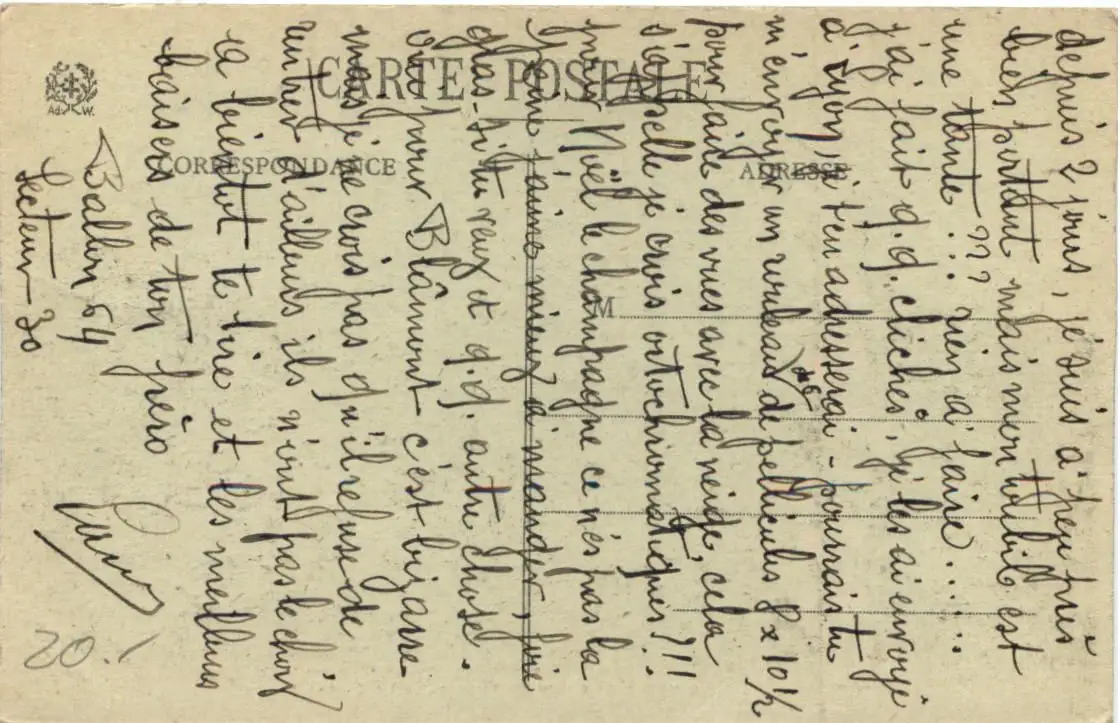 CARTE POSTALE
CORRESPONDANCE
ADRESSE
M
Ad. W.
depuis 2 jours, je suis à peu près
bien portant mais mon est
une tante !!! rien à faire.....
j'ai fait q.q. clichés, je les ai envoyé
à Lyon je t'en adresserai - pourrais tu
m'envoyer un rouleau de pellicules 8 x 10 1/2
de 6
pour faire des vues avec la neige, cela
s'appelle je crois ortochromatiques ?!!
pour Noël le champagne ce n'es pas la
peine j'aime mieux à manger, foie
gras si tu veux et q.q. autre chose.
ou pour Blâmont c'est bizarre
mais je ne crois pas qu'il refuse de
rentrer d'ailleurs ils n'ont pas le choix
à bientôt te lire et les meilleurs
baisers de ton frèro
Ballon 64
Secteur 30
20.-